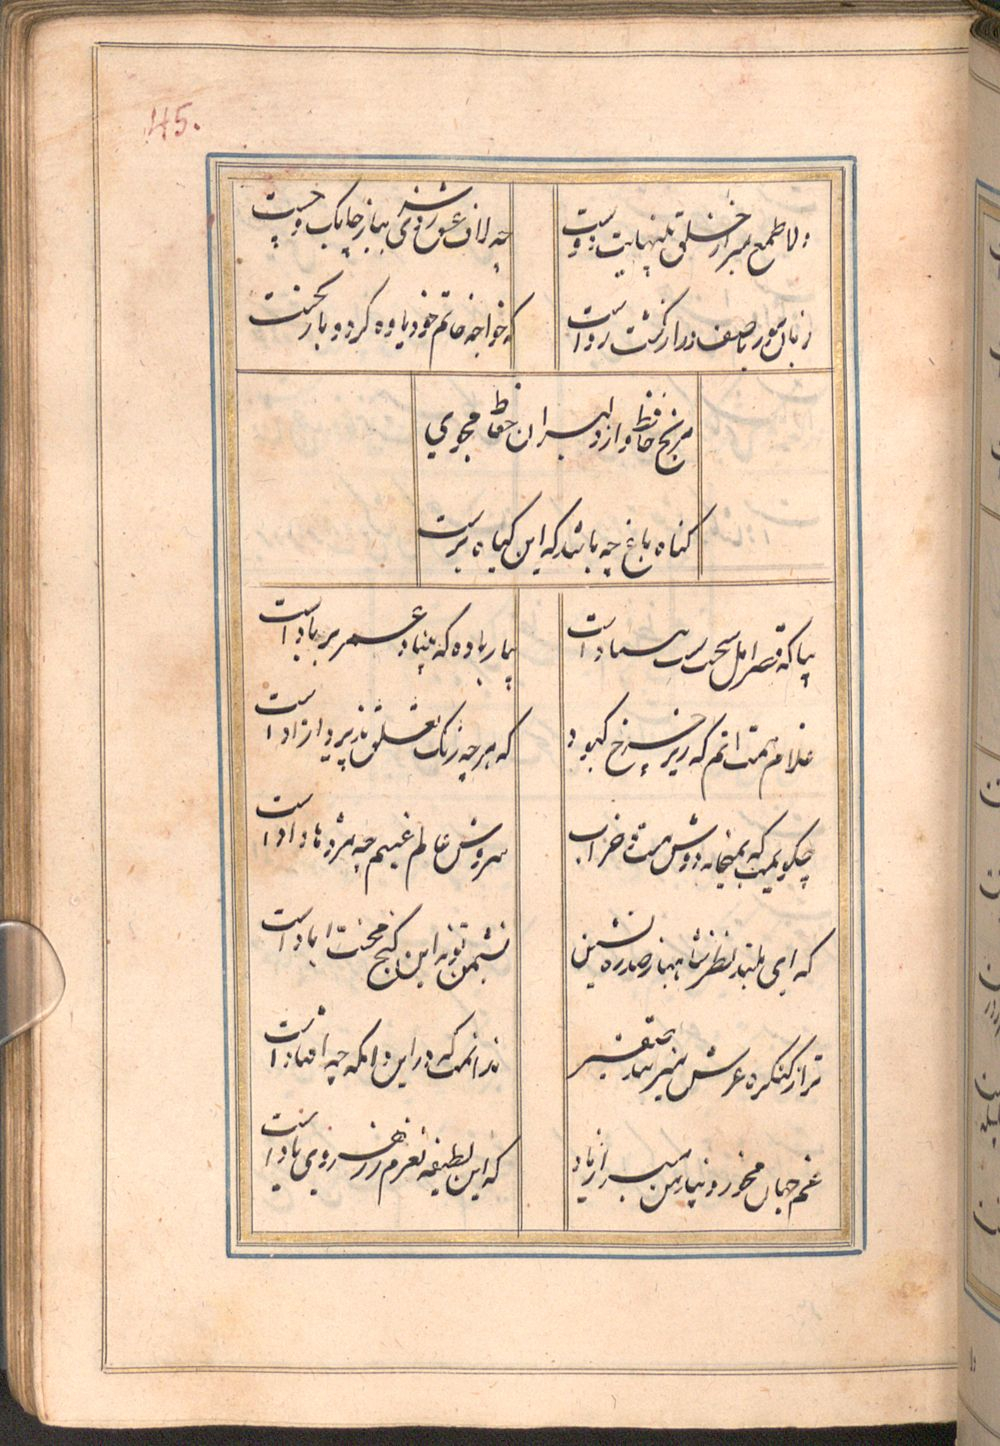 45.
دلا طمع مبر از خلق بینهایت دوست
چه لاف عشق زدی سر بباز چابک و چست
زبان مور بآصف دراز گشت رواست
که خواجه خاتم خود یاوه کرد و باز نجست
مرنج حافظ و از دلبران حفاظ مجوی
گناه باغ چه باشد که این گیاه نرست
بیا که قصر امل سخت سست بنیاد است
بیار باده که بنیاد عمر بر باد است
غلام همت انم که زیر چرخ کبود
که هر چه رنک تعلق پذیرد ازاد است
چکویمت که بمیخانه دوش مست و خراب
سروش عالم غیبم چه مژدها داد است
که ای بلند نظر شاهباز صدره نشین
نشیمن تو نه این کنج محنت اباد است
ترا ز کنکره عرش میزنند صفیر
ندانمت که در این دامکه چه افتاد است
غم جهان مخور و پند من مبر از یاد
که این لطیفه نغزم ز رهروی یاد است